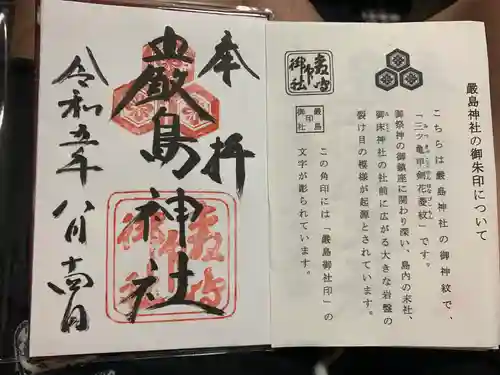 厳島神社の御朱印について
こちらは厳島神社の御神紋で、
「三ツ亀甲剣花菱紋」です。
御祭神の御鎮座に関わり深い、島内の末社、
御床神社の社前に広がる大きな岩盤の
裂け目の模様が起源とされています。
この角印には「厳島御社印」の
文字が彫られています。
奉拝
嚴島神社
令和五年八月十四日